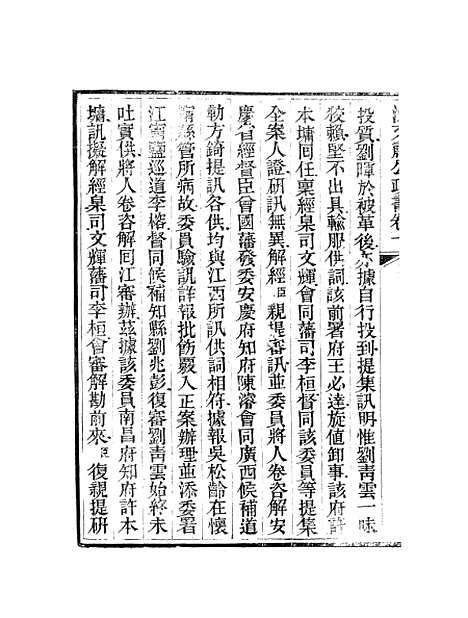 沈文肅公政書卷一
投質劉暉於被革後亦據自行投到提集訊明惟劉靑雲一味
狡賴堅不出具輸服供詞該前署府王必達旋値卸事該府許
本墉回任稟經臬司文輝會同藩司李桓督同該委員等提集
全案人證研訊無異解經臣親提審訊並委員將人卷咨解安
慶省經督臣曾國藩發委安慶府知府陳濬會同廣西候補道
勒方錡提訊各供均與江西所訊供詞相符據報吳松齡在懷
寧縣管所病故委員驗訊詳報批飭覈入正案辦理並添委署
江寧鹽巡道李榕督同候補知縣劉兆彭復審劉靑雲始終未
吐實供將人卷咨解回江審辦茲據該委員南昌府知府許本
墉訊擬解經臬司文輝藩司李桓會審解勘前來臣復親提研